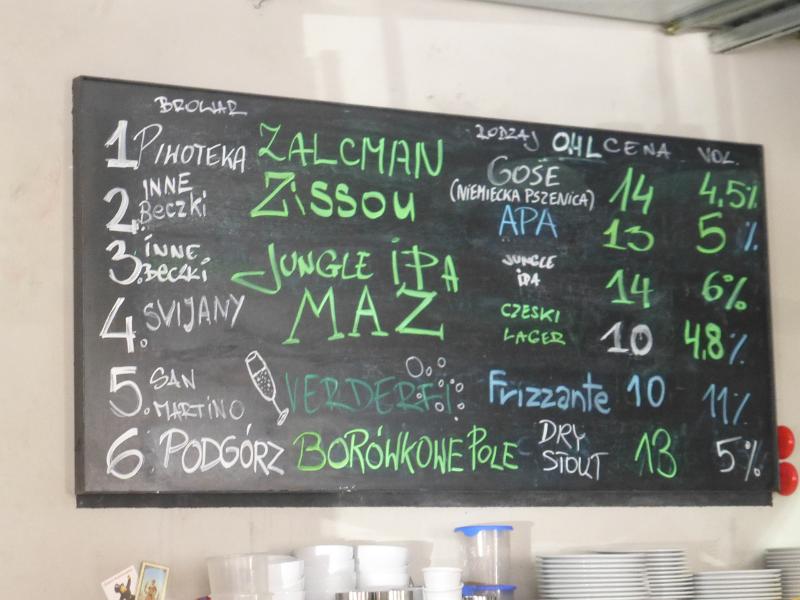 BROWAR RODZAJ 0,4L CENA VOL.
1 PIHOTEKA ZALCMAN GOSE (NIEMIECKA PSZENICA) 14 4.5%
2. INNE BECZKI ZISSOU APA 13 5%
3. INNE BECZKI JUNGLE IPA JUNGLE IPA 14 6%
4. SVIJANY MAZ CZESKI LAGER 10 4.8%
5. SAN MARTINO VERDERFI Frizzante 10 11%
6 PODGÓRZ BORÓWKOWE POLE DRY STOUT 13 5%